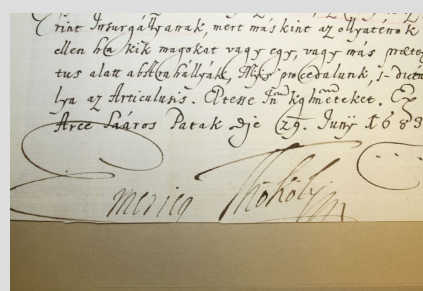 rint Insurgállyanak, mert máskint az ollyatének
ellen ha kik magokat vagy egy, vagy más prætex
tus alatt abstrahállyák, procedalunk, s dictá
lya az Articulusis. Éltesse Kglmeteket. Ex
Arce Sááros Patak die 29. Junÿ 1683
Emericq Thököly m